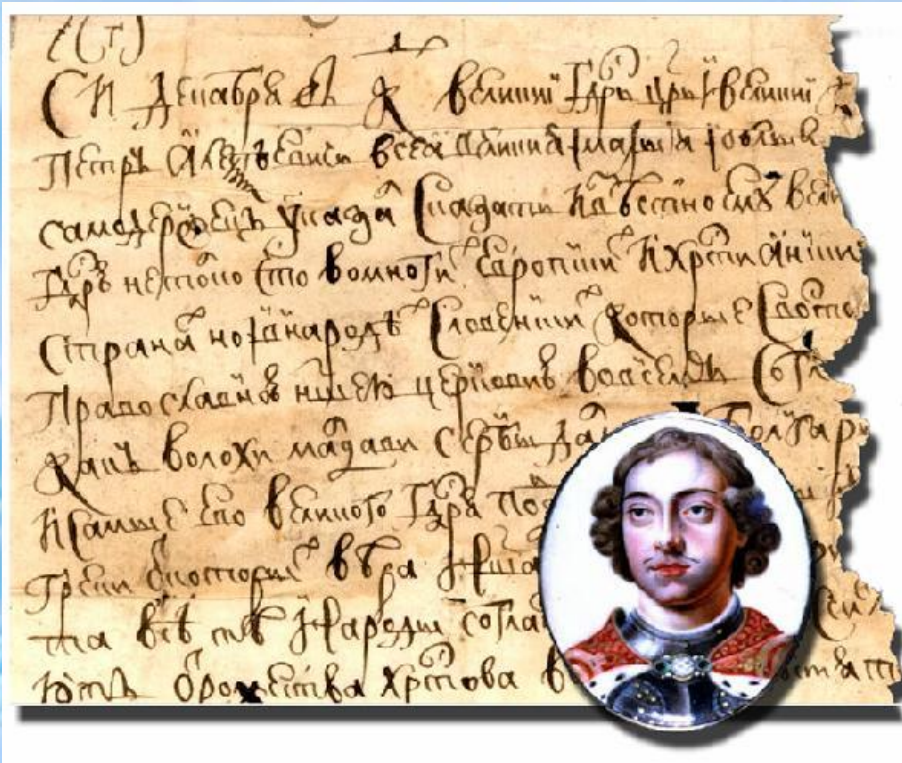 СИ декабря въ К великиi Гдрь црь i великиi
Петръ Алеѯѣевичь всеа Великиа i Малыа i Белыа
самодержецъ указа сказати извѣстно ему вели
Гдрю не толко что во многи Европски и христиански
страна но i в народѣ словенски которые с восто
православною ншею церковию во всемъ согла
какъ волохи малдави сербы дал болгары
и самые его великого Гдря под
греки от которы вѣра нша
та всѣ тѣ народы согла
ютъ от рожества Хрстова в